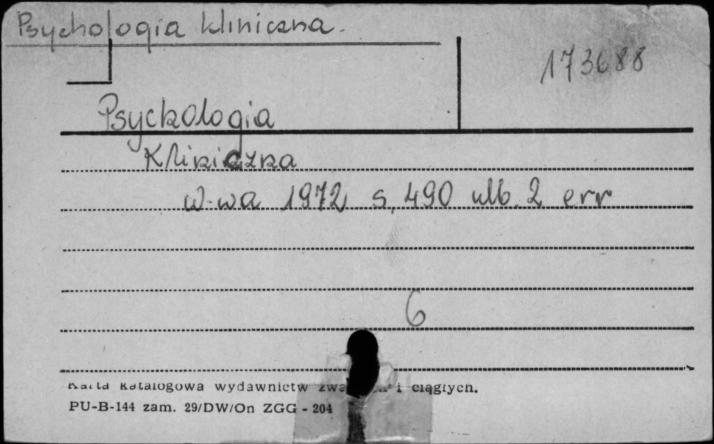 Psychologia kliniczna.
173688
Psychologia
Kliniczna
W-wa 1972 s. 490 ulb. 2 err
6
Karta katalogowa wydawnictw i ciągłych.
PU-B-144 zam. 29/DW/On ZGG - 204